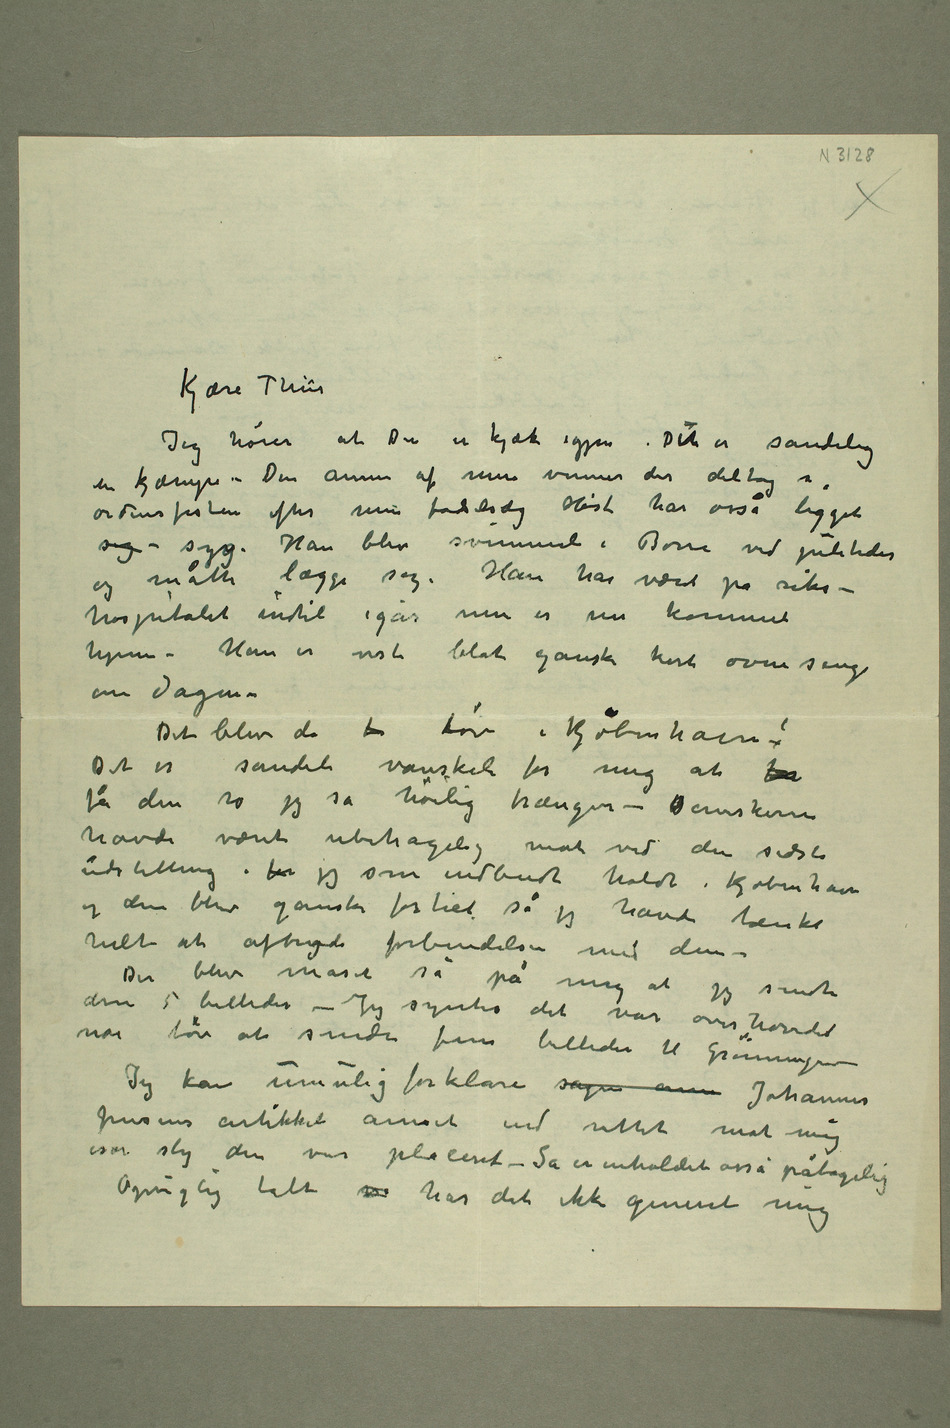 N 3128
Kjære Thiis
Jeg hører at De er kjæk igjen. De er sandelig
en kjæmpe – Den annen af mine venner der deltog i
ordensfesten efter min fødselsdag Høst har osså ligget
sig – syg. Han blev svimmel i Borre ved juletider
og måtte lægge sig. Han har været på riks-
hospitalet indtil igår men er nu kommet
hjem – Han er visst blot ganske kort oven senge
om dagen –
Det blev da tøv i Kjøbenhavn!
Det er sandeli vanskeli for mig at
få den ro jeg så høilig trænger – Danskerne
havde været ubehagelig mot ved den sidste
udstilling i jeg som indbudt holdt i Kjøbenhavn
og den blev ganske fortiet så jeg havde tænkt
helt at afbryde forbindelsen med dem –
Der blev maset så på mig at jeg sendte
dem 5 billeder – Jeg syntes det var overhovedet
noe tøv at sende fem billeder til Grønningen
Jeg kan umulig forklare sagen annen Johannes
jensens artikkel annet end rettet mot mig
især slig den var placeret – Så er inholdet osså påtagelig
Oprigtig talt har det ikke generet mig